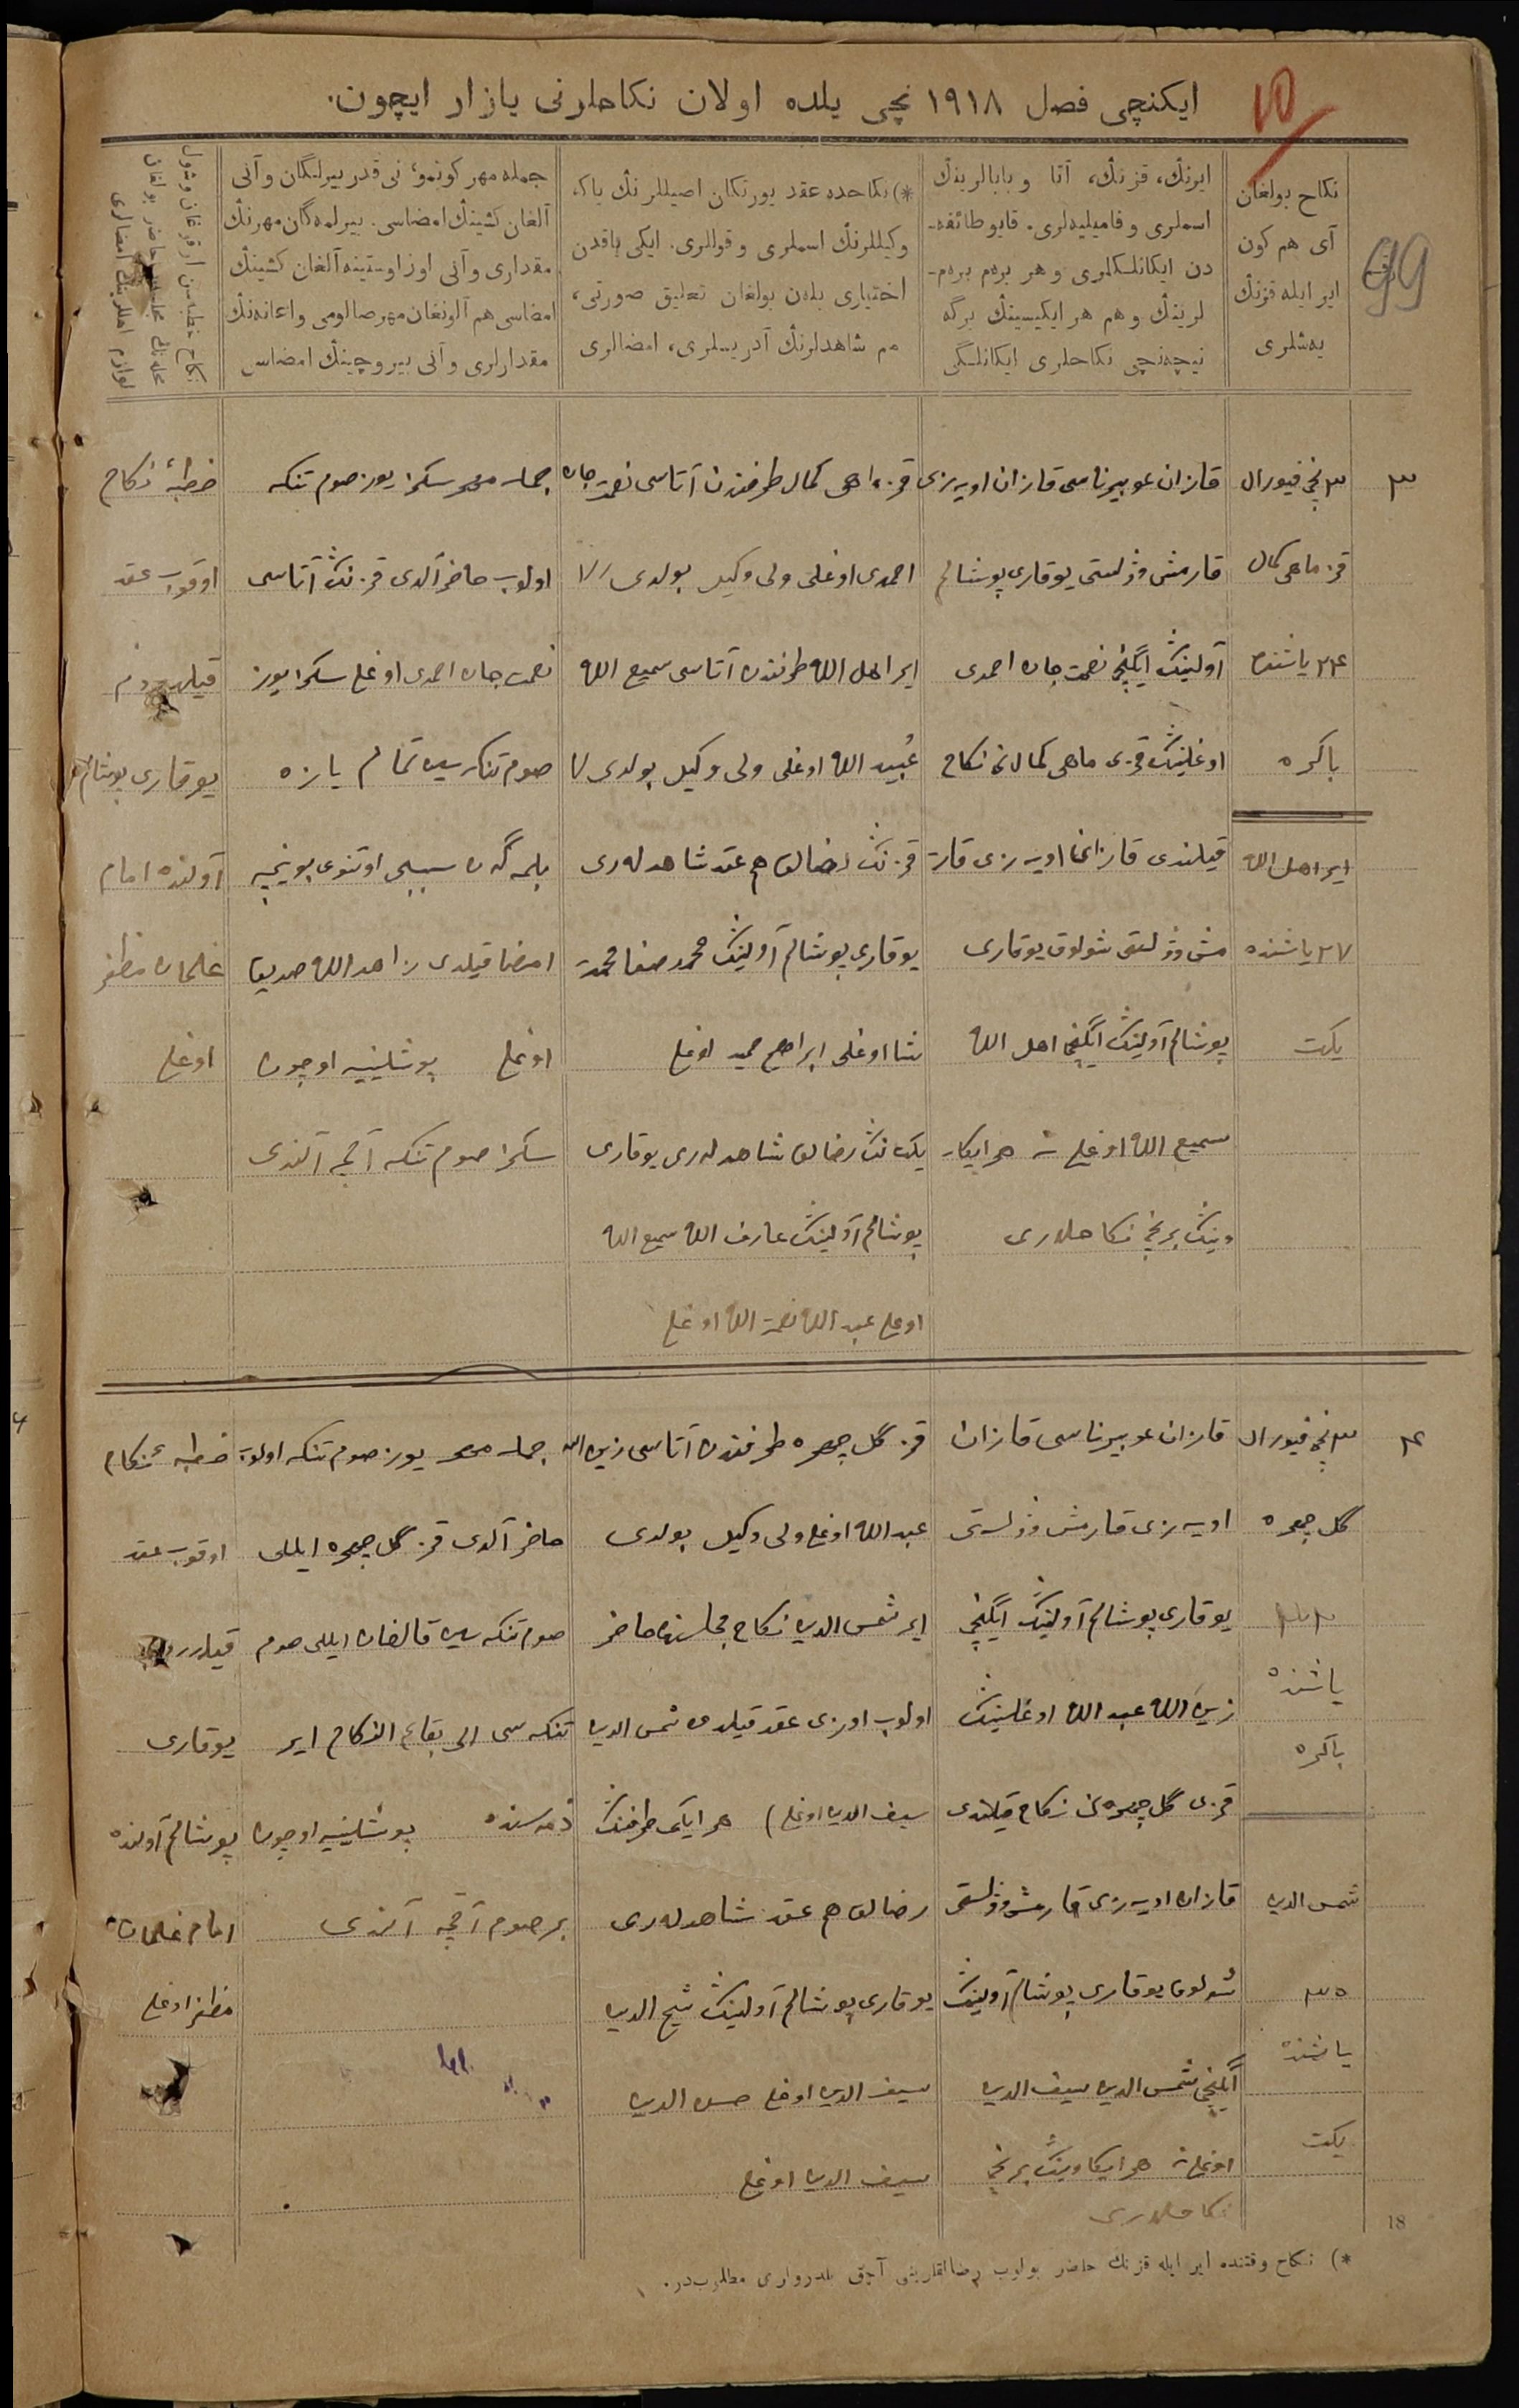 ایکنچی فصل ١٩١٨ نچی یلده اولان نکاحلرنی یازار ایچون.
10
99
نکاح بولغان
آی هم کون
ایر ایله قزنڭ
یەشلری
ایرنڭ، قزنڭ، آتا و بابالرینڭ
اسملری و فامیلیەلری. قایو طائفه-
دن ایکانلکلری و هر برەم برەم-
لرینڭ و هم هر ایکیسینڭ برگه
نیچەنچی نکاحلری ایکانلیگی
*) نکاحده عقد یورتکان اصیللرنڭ یاکه
وکیللرنڭ اسملری و قوللری. ایکی یاقدن
اختیاری بلەن بولغان تعلیق صورتی،
هم شاهدلرنڭ آدریسلری، امضالری
جمله مهر کوتمو؛ نی قدر بیرلگان و آنی
آلغان کشینڭ امضاسی. بیرلمەگان مهرنڭ
مقداری و آنی اوز اوستینه آلغان کشینڭ
امضاسی هم آلونغان مهر صالومی و اعانەنڭ
مقدارلری و آنی بیروچینڭ امضاسی
٣
٣ نچی فیورال
قز ماهی کمال
٢٤ یاشنده
باکره
ایر اهل الله
٢٧ یاشنده
یکت
قازان غوبیرناسی قازان اویەزی
قارمش وۋلستی یوقاری پوشالم
آولینڭ ایگنچی نعمت جان احمدی
اوغلینڭ قزی ماهی کمال نی نکاح
قیلندی قازان اویەزی قار
مش وۋلستی شولوق یوقاری
پوشالم آولینڭ ایگنچی اهل الله
سمیع الله اوغلی نه هر ایکا
وینڭ برنچی نکاحلەری
قز ماهی کمال طرفندن آتاسی نعمت جان
احمدی اوغلی ولی وکیل بولدی
ایر اهل الله طرفندن آتاسی سمیع الله
عبید الله اوغلی ولی وکیل بولدی
قزنڭ رضالق هم عقد شاهدلەری
یوقاری پوشالم آولینڭ محمد صفا محمد
شا اوغلی ابراهیم حمید اوغلی
یکت نڭ رضالق شاهدلەری یوقاری
پوشالم آولینڭ عارف الله سمیع الله
اوغلی عبد الله نعمة الله اوغلی
جمله مهر سکز یوز صوم تنکه
اولوب حاضر آلدی قزنڭ آتاسی
نعمت جان احمدی اوغلی سکز یوز
صوم تنکەسن تمام یازه
بلمەگەن سببلی اوتنوی بوینچه
امضا قیلدی زاهد الله صدیق
اوغلی پوشلینیه اوچون
سکز صوم تنکه آقچه آلندی
خطبۀ نکاح
اوقوب عقد
قیلدردم
یوقاری پوشالم
آولنده امام
غلمان مظفر
اوغلی
٤
٣ نچی فیورال
گل چهره
یاشنده
باکره
شمس الدین
٣٥
یاشنده
یکت
قازان غوبیرناسی قازان
اویەزی قارمش وۋلستی
یوقاری پوشالم آولینڭ ایگنچی
زین الله عبد الله اوغلینڭ
قزی گل چهره نی نکاح قیلندی
قازان اویەزی قارمش وۋلستی
شولوق یوقاری پوشالم آولینڭ
ایگنچی شمس الدین سیف الدین
اوغلی نه هر ایکاوینڭ برنچی
نکاحلەری
قز گل چهره طرفندن آتاسی زین الله
عبد الله اوغلی ولی وکیل بولدی
ایر شمس الدین نکاح مجلسنده حاضر
اولوب اوزی عقد قیلدی شمس الدین
سیف الدین اوغلی) هر ایکی طرفنڭ
رضالق هم عقد شاهدلەری
یوقاری پوشالم آولینڭ شیخ الدین
سیف الدین اوغلی حسن الدین
سیف الدین اوغلی
جمله مهر یوز صوم تنکه اولوب
حاضر آلدی قز گل چهره ایللی
صوم تنکەسن قالغان ایللی صوم
تنکەسی الی بقاء النکاح ایر
ذمەسنده پوشلینیه اوچون
بر صوم آقچه آلندی
خطبۀ نکاح
اوقوب عقد
قیلدردم
یوقاری
پوشالم آولنده
امام غلمان
مظفر اوغلی
18
*) نکاح وقتنده ایر ایله قزنڭ حاضر بولوب رضالقلرینی آچق بلدرولری مطلوبدر.